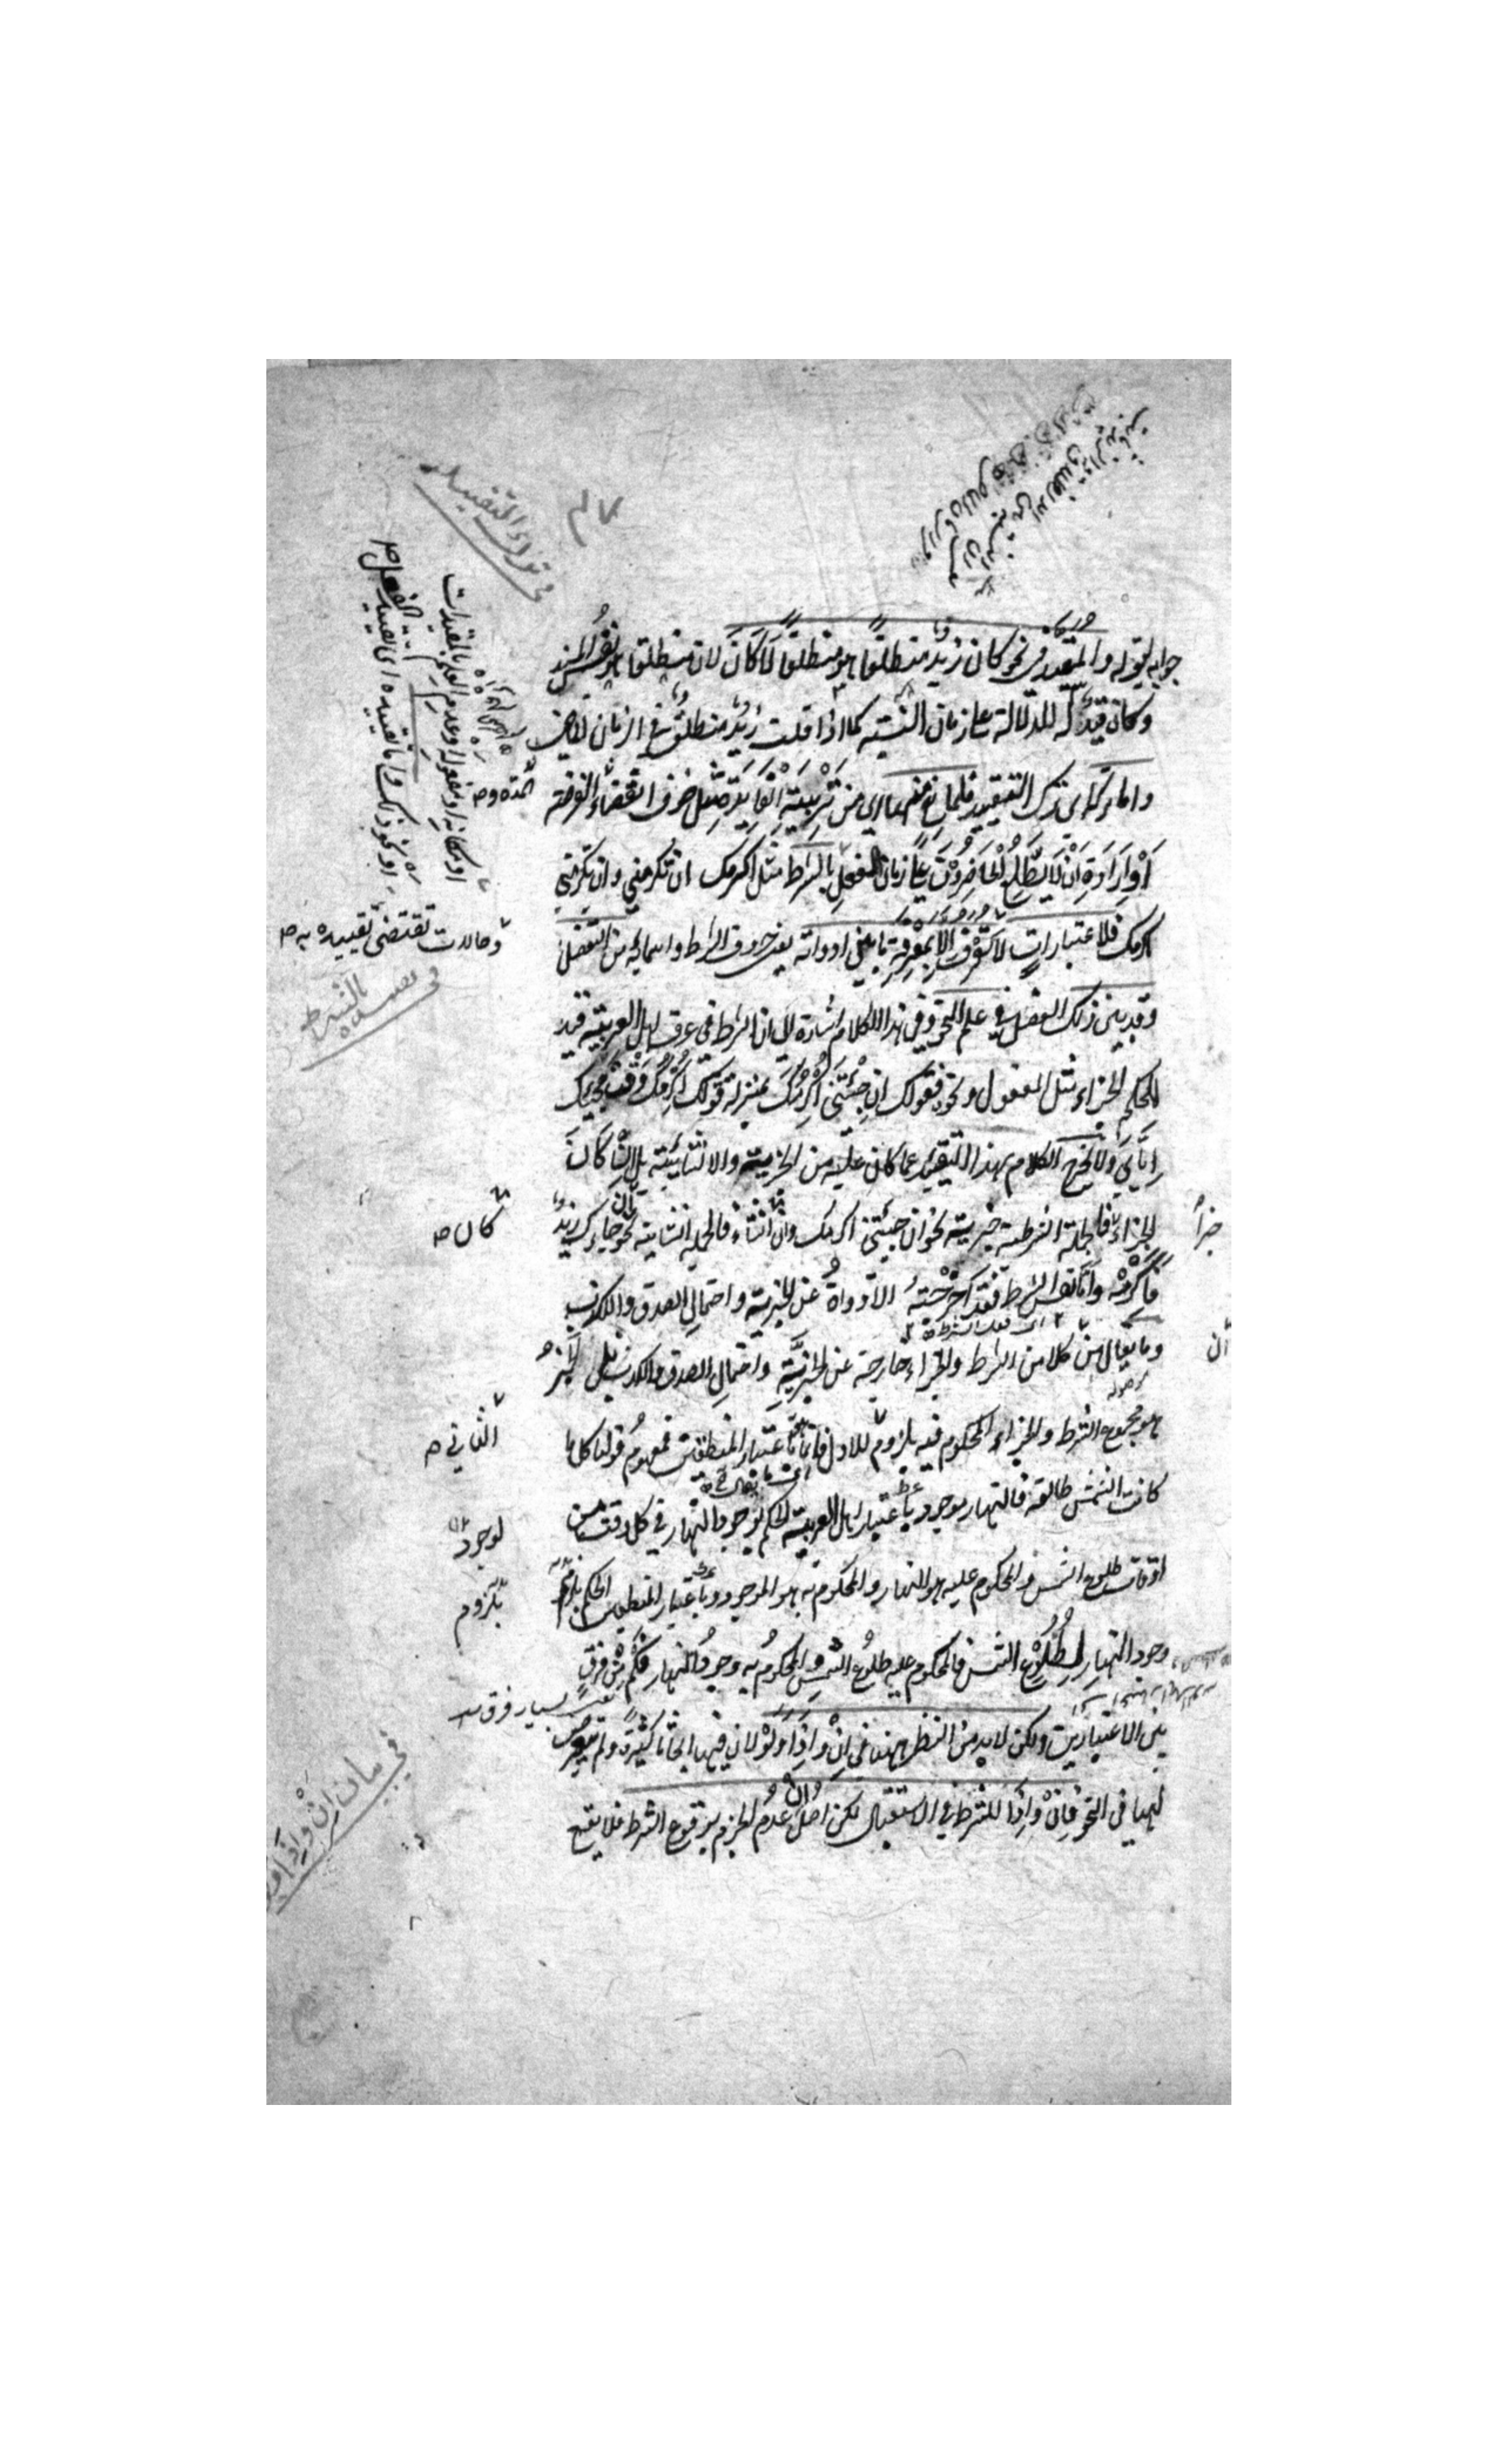 في ترك التقييد
جواب لقوله والمقيد في نحو كان زيد منطلقا هو منطلقا لا كان لان منطلقا هو نفس المسند
وكان قيد له للدلالة على زمان النسبة كما اذا قلت زيد منطلق في الزمان الماضي
واما تركه اى ترك التقييد فلمانع منها اى من تربية الفايدة مثل خوف انقضاء الفرصة
او ارادة ان لا يطلع الحاضرون على زمان الفعل
او مكانه او مفعوله وعدم العلم بالمقيدات
او نحو ذلك واما تقييده اى تقييد الفعل
بالشرط مثل اكرمك ان تكرمني وان تكرمني
اكرمك فلاعتبارات
وحالات تقتضى تقييده به
لا تعرف الا بمعرفة ما بين ادواته يعنى حروف الشرط واسمائه من التفصيل
في تقييده بالشرط
وقد بين ذلك التفصيل في علم النحو وفي هذا الكلام اشارة الى ان الشرط في عرف اهل العربية قيد
لحكم الجزاء مثل المفعول ونحوه فقولك ان جئتني اكرمك بمنزلة قولك اكرمك وقت مجيئك
اياي ولا يخرج الكلام بهذا التقييد عما كان عليه من الخبرية والانشائية بل ان كان
الجزاء خبرا فالجملة الشرطية خبرية نحو ان جئتني اكرمك وان كان انشاء فالجملة انشائية نحو ان جاءك زيد
فاكرمه واما نفس الشرط فقد اخرجته الادواة عن الخبرية واحتمال الصدق والكذب
وما يقال من ان كلا من الشرط والجزاء خارجة عن الخبرية واحتمال الصدق والكذب بل الخبر
هو مجموع الشرط والجزاء المحكوم فيه بلزوم الثاني للاول فانما هو باعتبار المنطقيين فمفهوم قولنا كلما
كانت الشمس طالعة فالنهار موجود باعتبار اهل العربية الحكم بوجود النهار في كل وقت من
اوقات طلوع الشمس فالمحكوم عليه هو النهار والمحكوم به هو الموجود وباعتبار المنطقيين الحكم بلزوم
وجود النهار لطلوع الشمس فالمحكوم عليه طلوع الشمس والمحكوم به وجود النهار فكم من فرق
بين الاعتبارين ولكن لابد من النظر ههنا في ان واذا ولو لان فيها ابحاثا كثيرة لم يتعرض
لها في النحو فان واذا للشرط في الاستقبال لكن اصل ان عدم الجزم بوقوع الشرط فلا يقع
في بيان ان واذا ولو